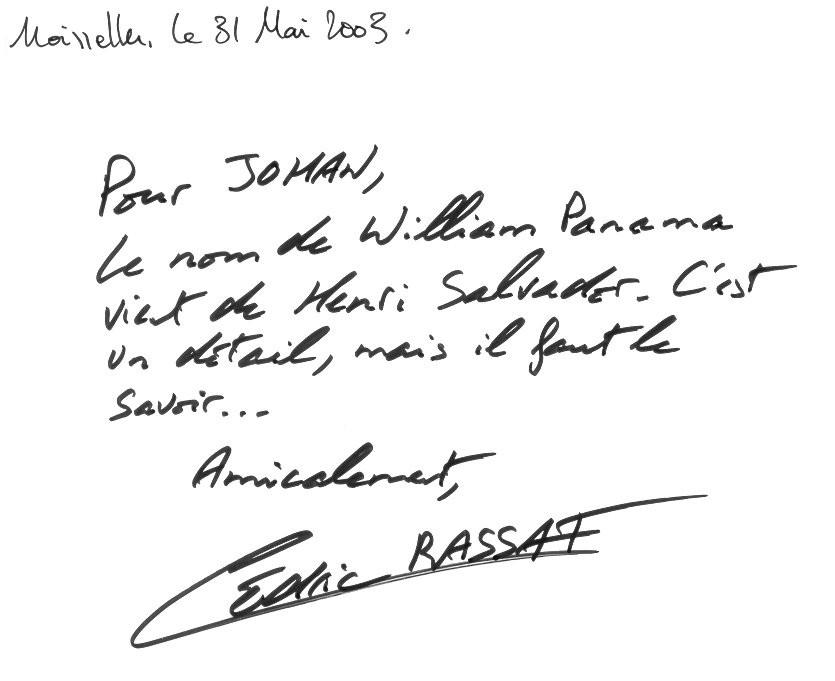 Moisselles, le 31 Mai 2003.
Pour JOHAN,
Le nom de William Panama
vient de Henri Salvador. C'est
un détail, mais il faut le
savoir...
Amicalement,
Cédric RASSAT